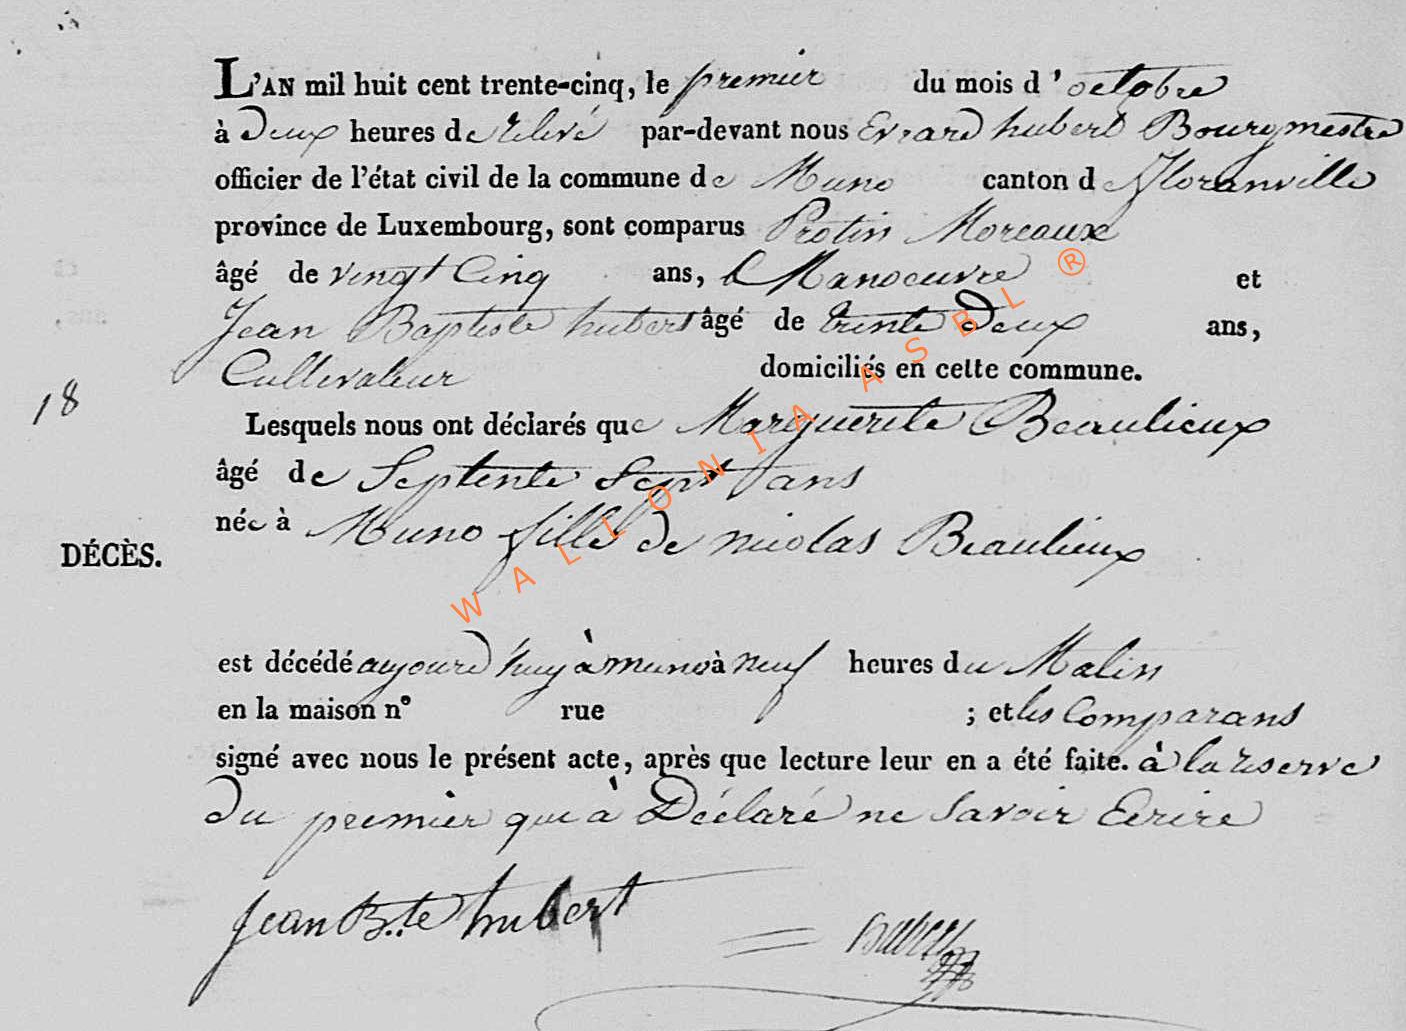 L'AN mil huit cent trente-cinq, le premier du mois d'octobre
à deux heures de relevé par-devant nous Evrard hubert Bourgmestre
officier de l'état civil de la commune de Muno canton de Floranville
province de Luxembourg, sont comparus Protin Moreaux
âgé de vingt Cinq ans, Manoeuvre et
Jean Baptiste hubert âgé de trente deux ans,
Cultivateur domiciliés en cette commune.
18
Lesquels nous ont déclarés que Marguerite Beaulieux
âgé de Septente Sept ans
née à Muno fille de nicolas Beaulieux
DÉCÈS.
est décédé aujourd'huy à muno à neuf heures du Matin
en la maison n° rue ; et les Comparans
signé avec nous le présent acte, après que lecture leur en a été faite. à la reserve
du premier qui à Déclaré ne Savoir Ecrire
Jean Bte hubert hubert
WALLONIA ASBL ®